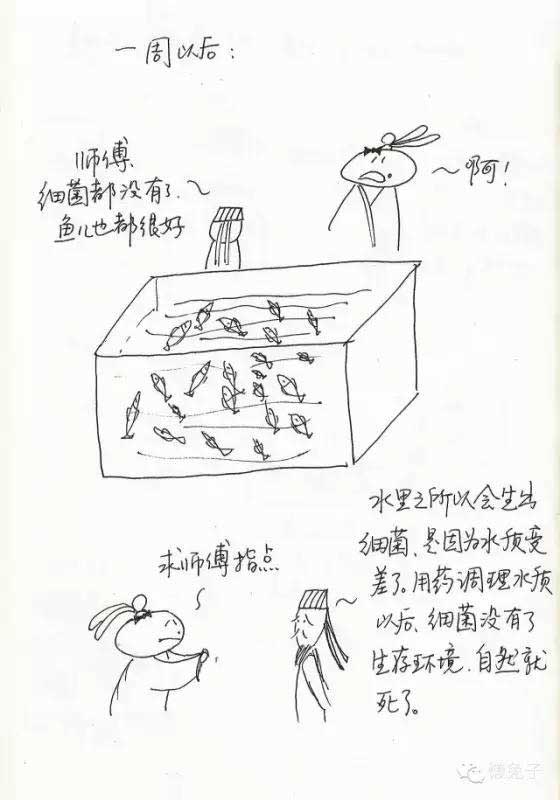 一周以后：
师傅、
细菌都没有了、
鱼儿也都很好
啊！
求师傅指点
水里之所以会生出
细菌、是因为水质变
差了。用药调理水质
以后、细菌没有了
生存环境、自然就
死了。
懒兔子